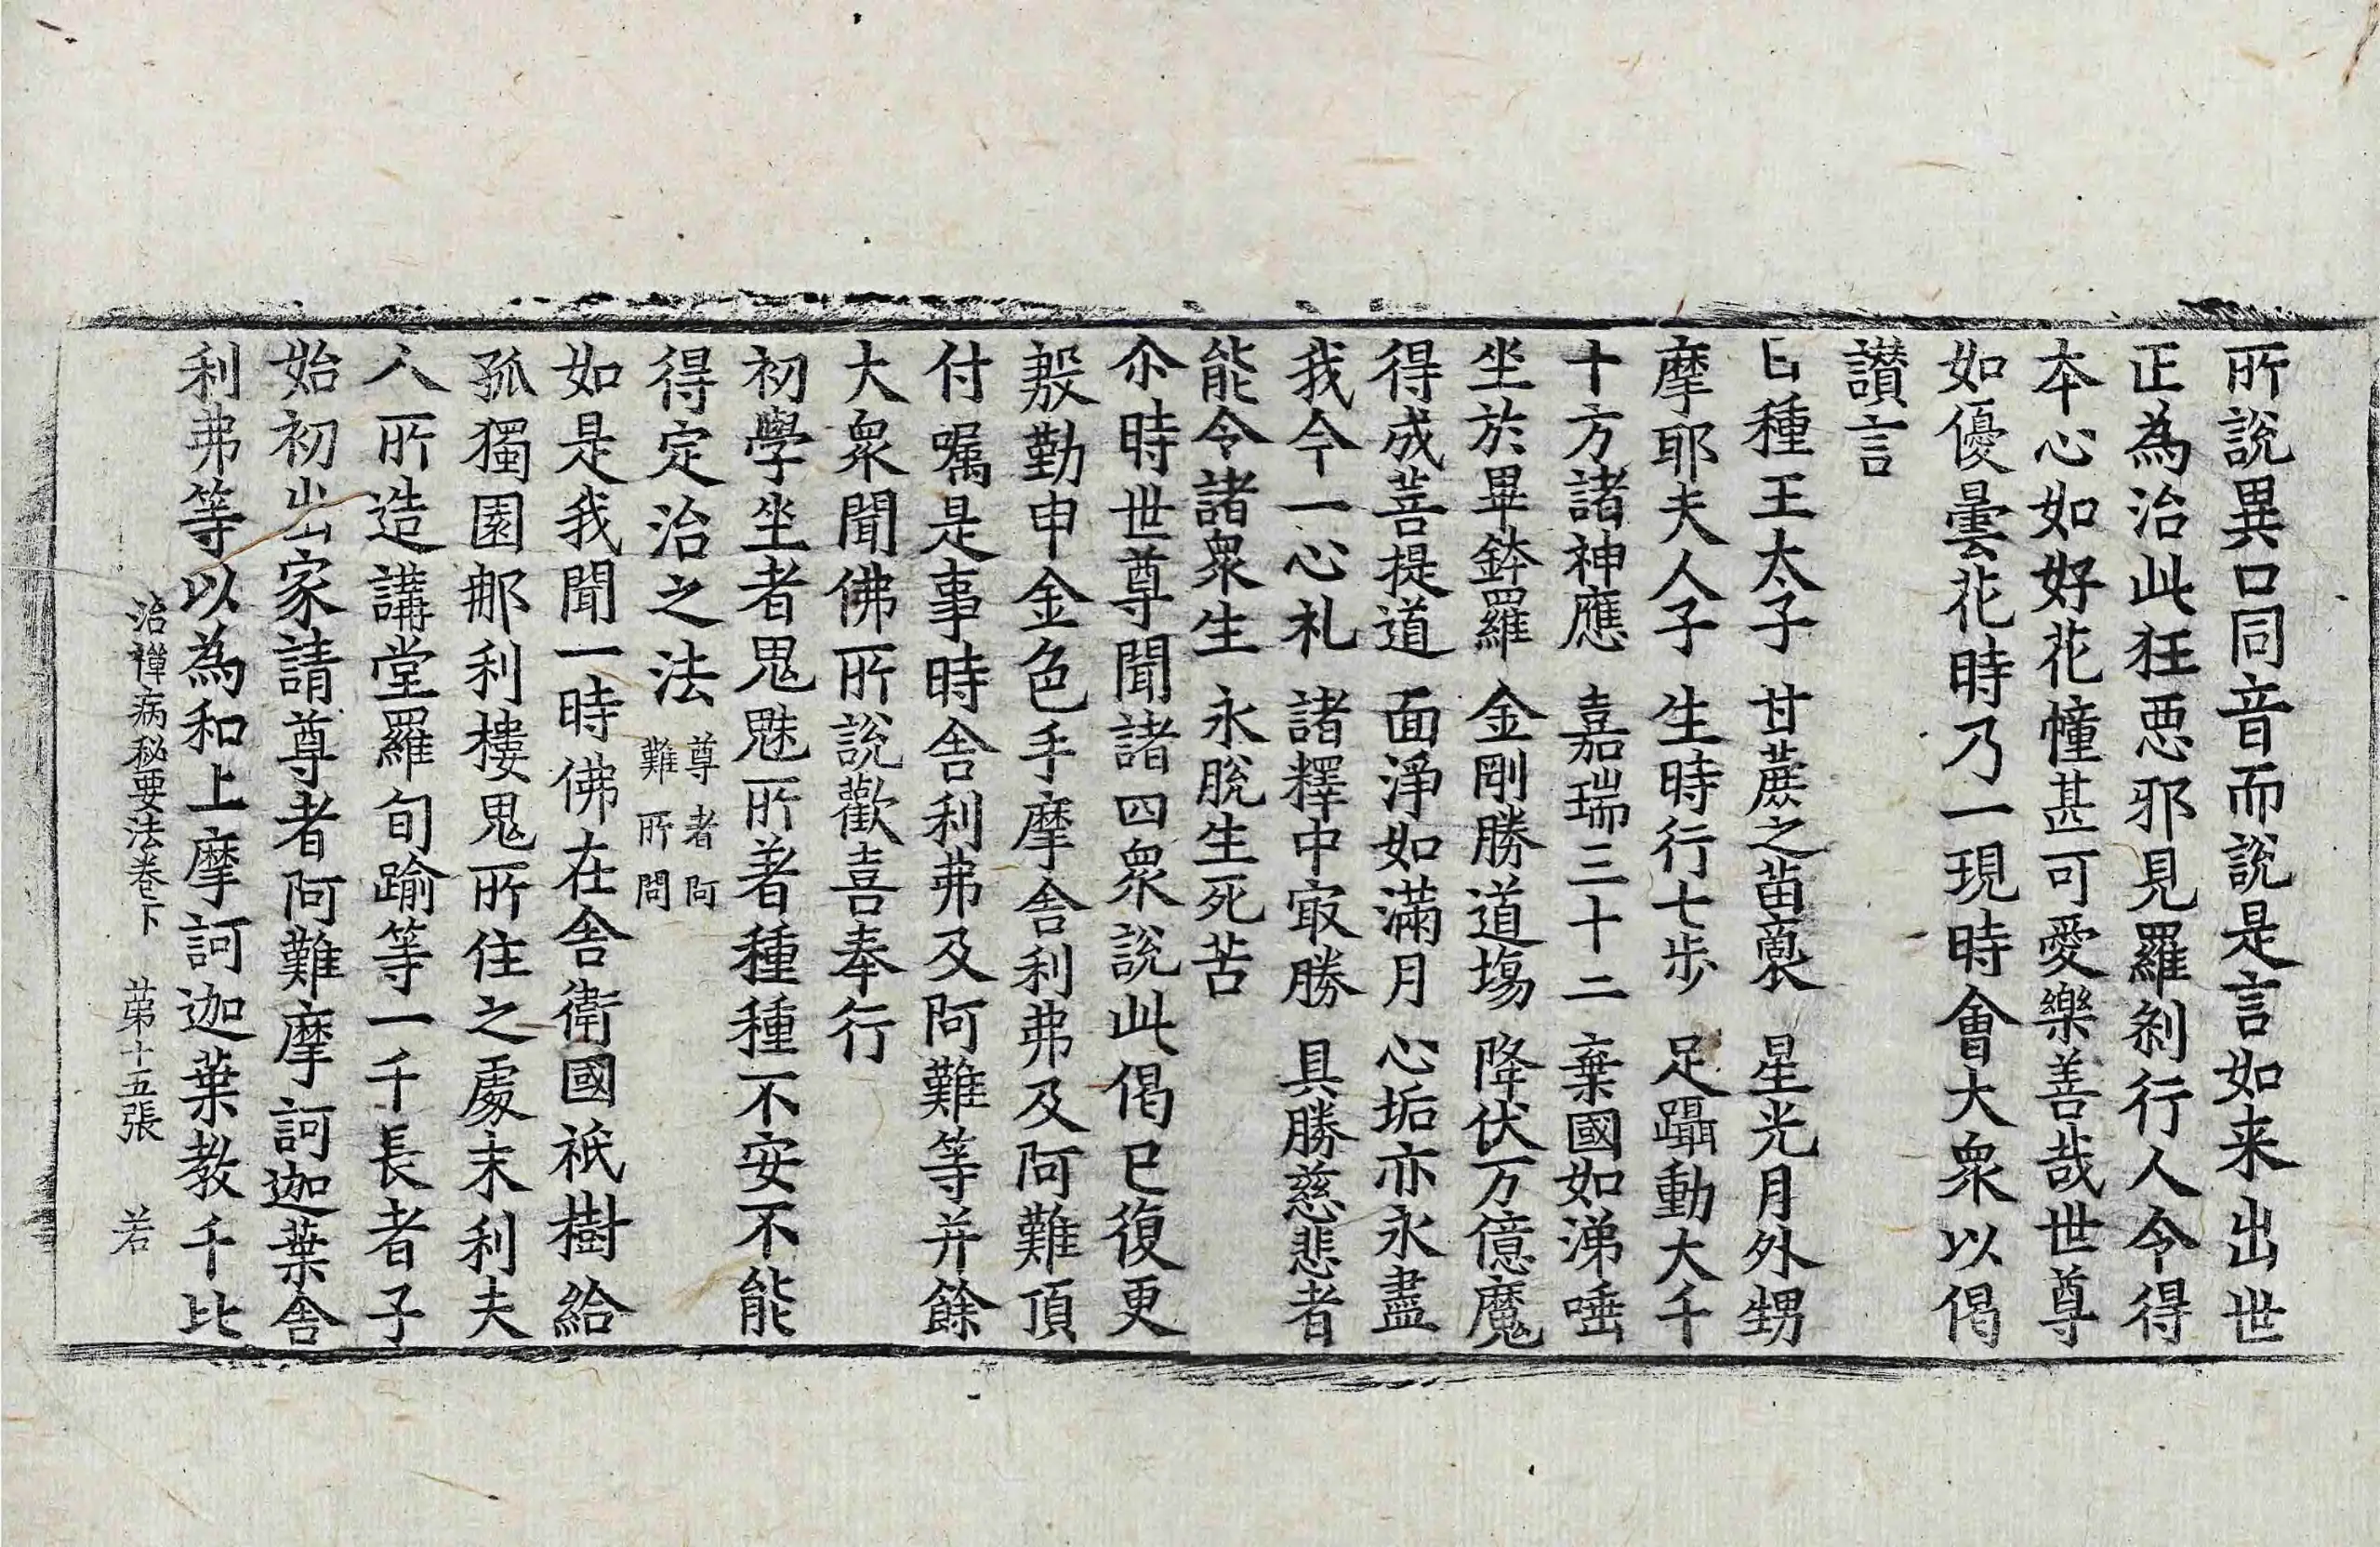 所說異口同音而說是言如来出世
正為治此狂惡邪見羅刹行人令得
本心如好花幢甚可愛樂善哉世尊
如優曇花時乃一現時會大衆以偈
讃言
日種王太子 甘蔗之苗裔 星光月外甥
摩耶夫人子 生時行七步 足躡動大千
十方諸神應 嘉瑞三十二 棄國如涕唾
坐於畢鉢羅 金剛勝道塲 降伏万億魔
得成菩提道 面淨如滿月 心垢亦永盡
我今一心礼 諸釋中㝡勝 具勝慈悲者
能令諸衆生 永脫生死苦
尒時世尊聞諸四衆說此偈已復更
慇勤申金色手摩舎利弗及阿難頂
付囑是事時舎利弗及阿難等并餘
大衆聞佛所說歡喜奉行
初學坐者鬼魅所著種種不安不能
得定治之法 尊者阿難所問
如是我聞一時佛在舎衛國祇樹給
孤獨園那利樓鬼所住之處末利夫
人所造講堂羅旬踰等一千長者子
始初出家請尊者阿難摩訶迦葉舎
利弗等以為和上摩訶迦葉教千比
治禪病秘要法卷下 苐十五張 若